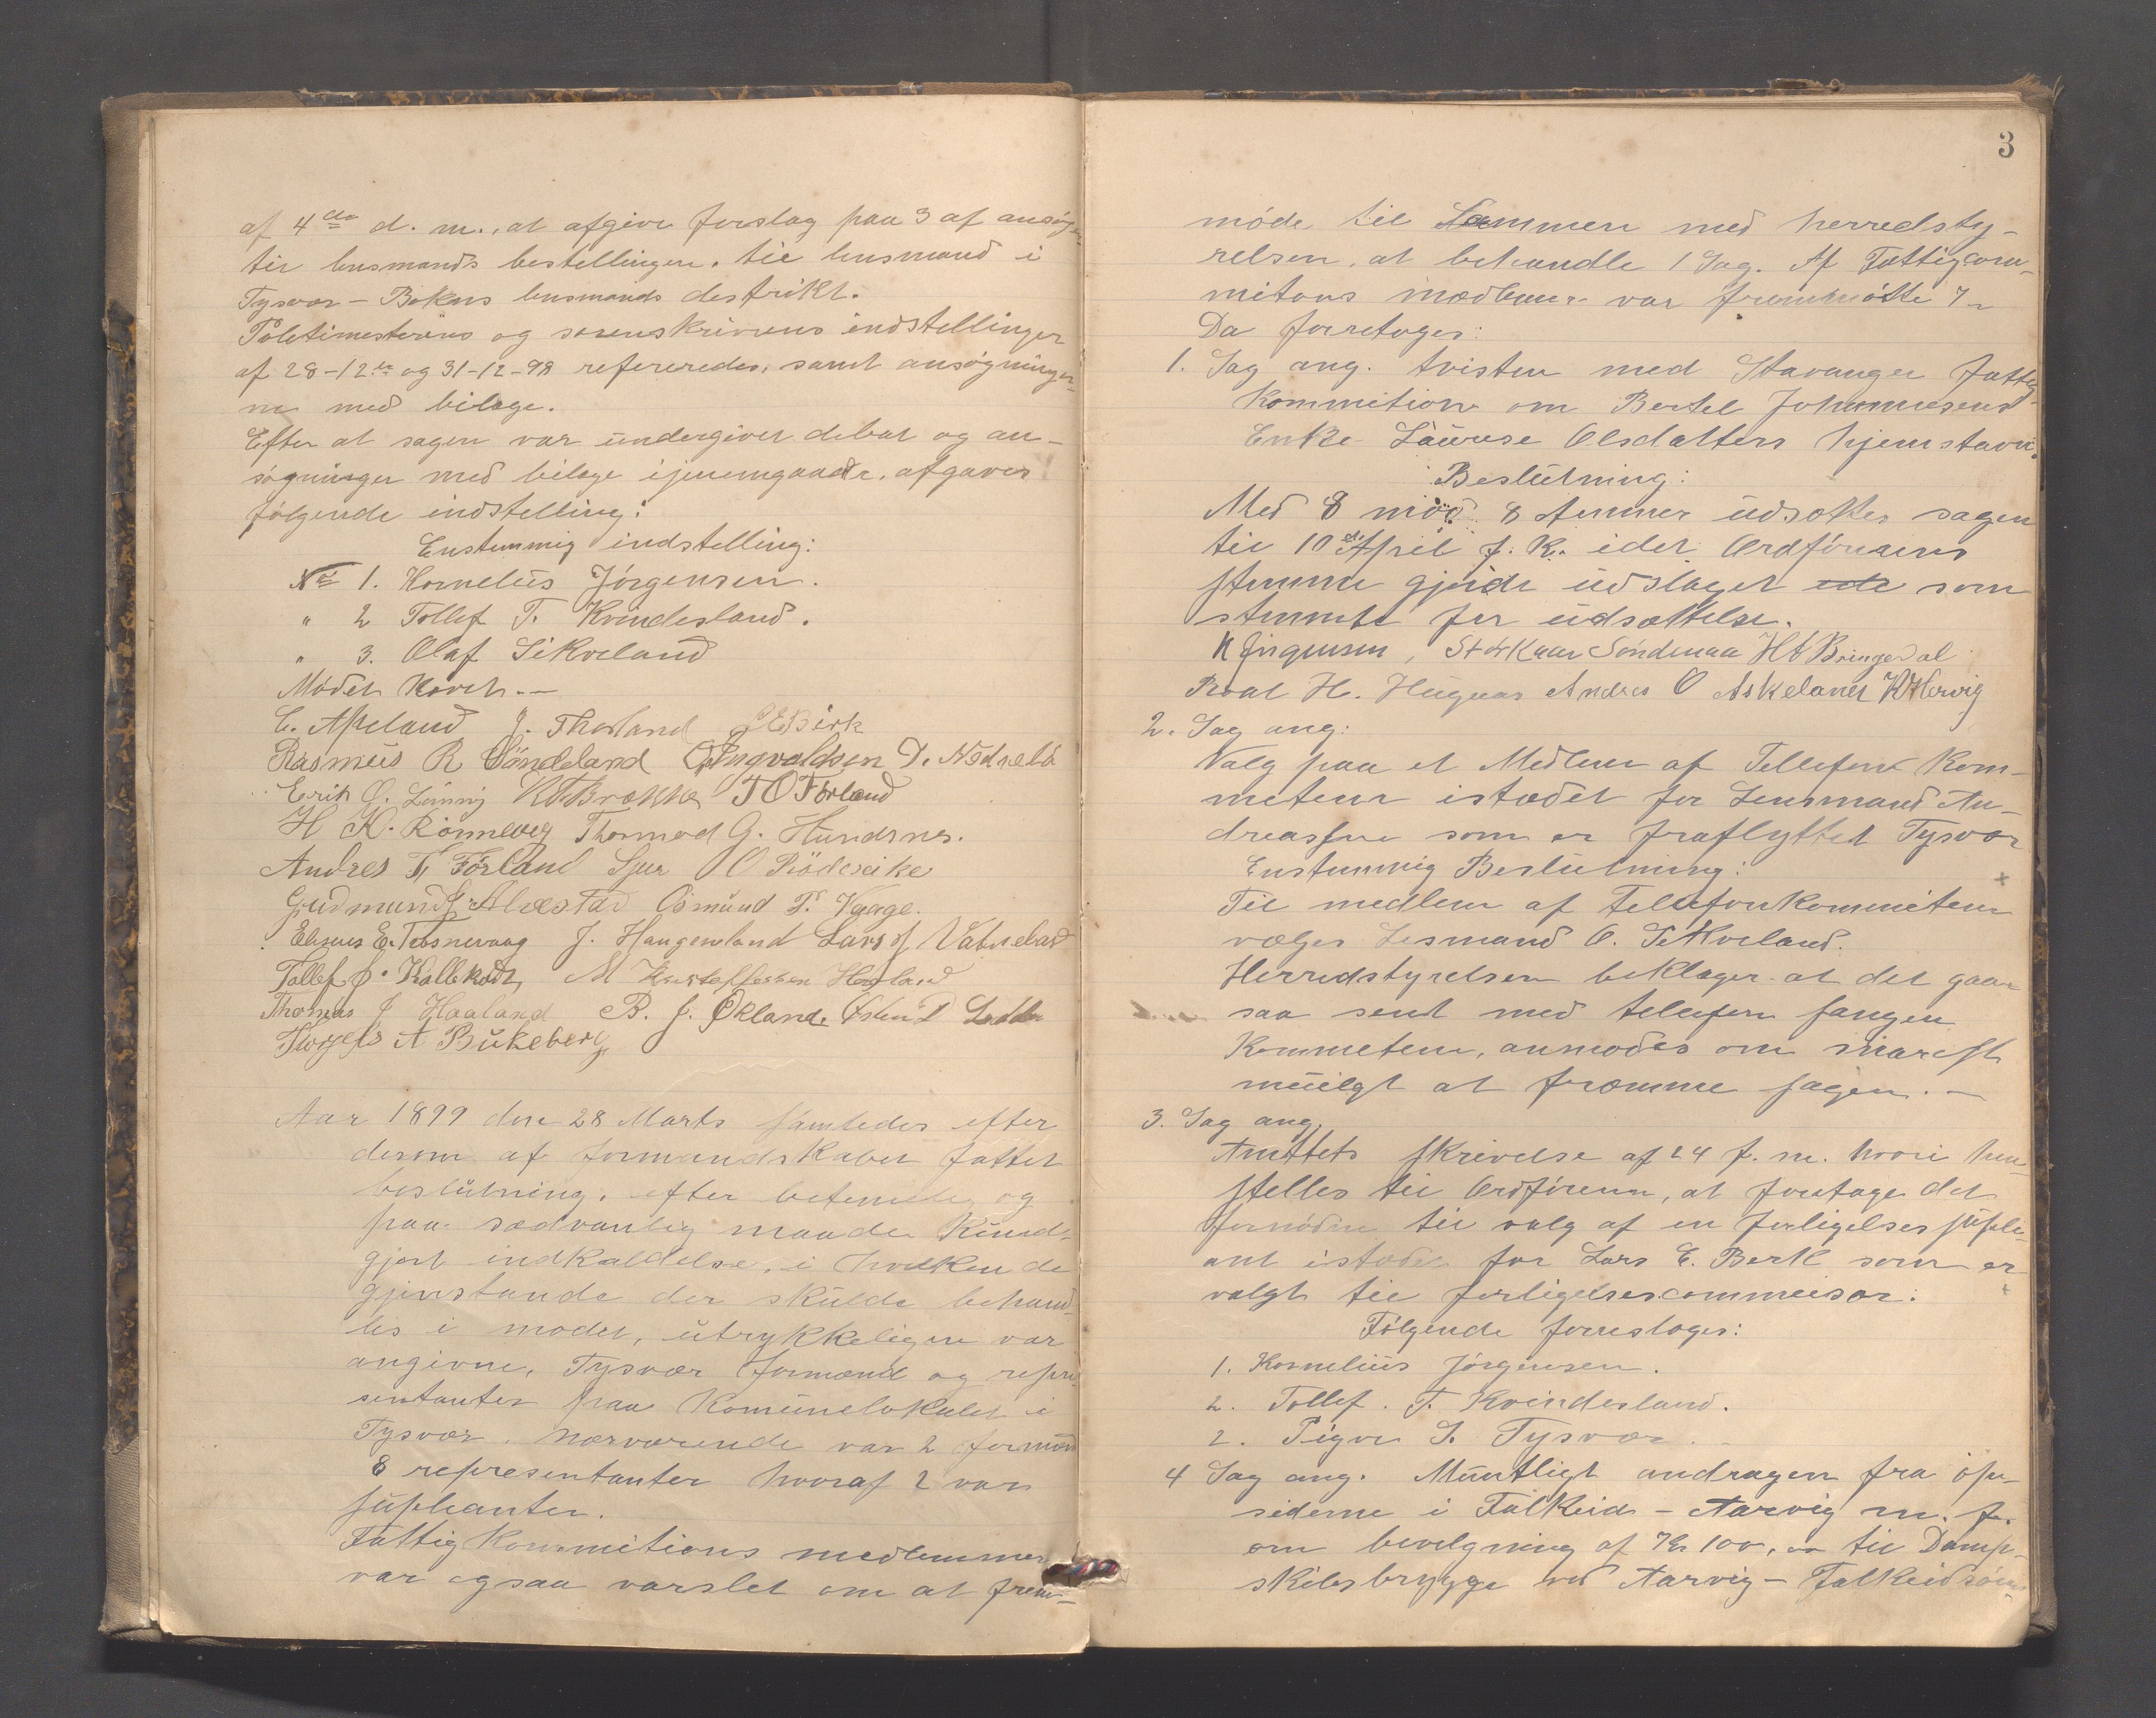 af 4de d. m., at afgive forslag paa 3 af ansög-
tir lensmands bestellingen. til lensmand i
Tysvær – Bokns lensmands destrikt.
Politimesterens og sorenskriverens indstellinger
af 28-12te og 31-12-98 refereredes, samt ansögninger-
ne med bilage.
Efter at sagen var undergivet debat og an-
sögninger med bilage igjennemgaaede, afgaves
fölgende indstelling:
Enstemmig indstelling:
No 1. Kornelius Jörgensen.
" 2 Tollef T. Kvindesland.
" 3. Olaf Sikveland
Mödet hævet.-
C. Apeland J. Thorland J E Birk
Rasmus R Vöndeland O Ingvaldsen D. Nödseld
Erik G. Lönnig K F Brække T O Förland
H K. Rönnevig Thormod G. Hundsnes.
Andres T. Förland Sjur O Röderike
Gudmund J. Alvestad Osmund P. Vaage.
Elseus E. Tresnevaag J. Haugenland Lars J Vatneland
Tollef J. Kallekodt M Kristoffersen Hesland
Thomas J Haaland B. J. Økland. Osten D
Thorgels A Bukeberg
Aar 1899 den 28 Marts samledes efter
derom af formandskabet fattet
beslutning, efter betemelig og
paa sædvanlig maade kund-
gjort indkaldelse, i hvilken de
gjenstande der skulde behand-
les i mødet, utrykkeligen var
angivne, Tysvær formænd og repre-
sentanter paa Komunelokalet i
Tysvær. Nærværende var 2 formænd
8 representanter hvoraf 2 var
supleanter.
Fattigkommitions medlemmer
var ogsaa varslet om at frem-
3
möde til Sammen med herredsty-
relsen, at behandle 1 Sag. Af Fattigcom-
mitions medlemer var fremmötte 7-
Da foretoges:
1. Sag ang. tvisten med Stavanger fattig-
Kommition om Bertel Johannesens
Enke Lauvese Olsdatters hjemstavn.
Beslutning:
Med 8 mod 8 stemmer udsættes sagen
til 10de April f. K. idet Ordförerens
stemme gjorde udslaget ede som
stemmte for udsættelse.
K Jörgensen, Störkaar Söndenaa H A Bringedal
Roal H. Hugaas Andres O Askeland K Hervig
2. Sag ang:
Valg paa et Medlem af Tellefon Kom-
meteen istædet for Lensmand An-
dreassen som er fraflyttet Tysvær
Enstemmig Beslutning:
Til medlem af Tellefonkommiteen
vælges Lesmand O. Sikveland.
Herredstyrelsen beklager at det gaar
saa sent med tellefon sangen
Kommeteen, anmodes om snarest
muligt at fremme sagen.-
3. Sag ang.
Amttets skrivelse af 24 f. m. hvori hen
stelles til Ordföreren, at foretage det
fornödne til valg af en forligelses suple-
ant istædet for Lars E. Berk som er
valgt til forligelsescommisær:
Fölgende foresloges:
1. Kornelius Jörgensen.
2. Tollef. T. Kvindesland.
2. Sigve S. Tysvær.
4 Sag ang. Muntligt andragen fra op-
sederne i Falkeid - Aarvig m. fr.
om bevilgning af Kr 100, til Damp-
skibsbrygge ved Aarvig - Falkeid